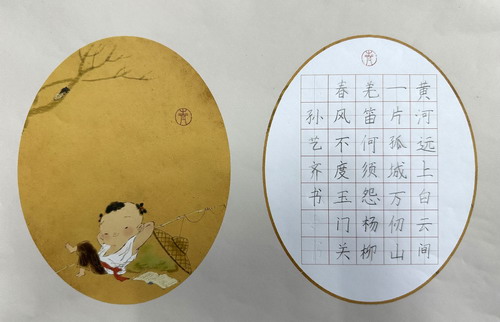 黄河远上白云间
一片孤城万仞山
羌笛何须怨杨柳
春风不度玉门关
孙艺齐书